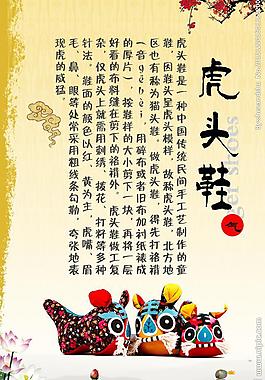 虎头鞋
Tiger shoes
虎头鞋是一种中国传统民间手工艺制作的童
鞋，因鞋头呈虎头模样，故称虎头鞋，北方地
区也有称为猫头鞋。做虎头鞋，得先打袼褙
（一音gē bèi，用碎布或者旧布加衬纸裱成
的厚片），按鞋样的大小剪下一块，再将一层
好看的布料缝在剪下的袼褙外。虎头鞋做工复
杂，仅虎头上就需用刺绣、拨花、打籽等多种
针法，鞋面的颜色以红、黄为主，虎嘴、眉
毛、鼻、眼等处常采用粗线条勾勒，夸张地表
现虎的威猛。